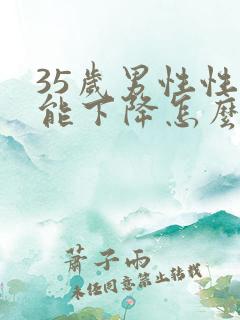 35歲男性性
能下降怎麼
蕭子雨
未經同意禁止轉載